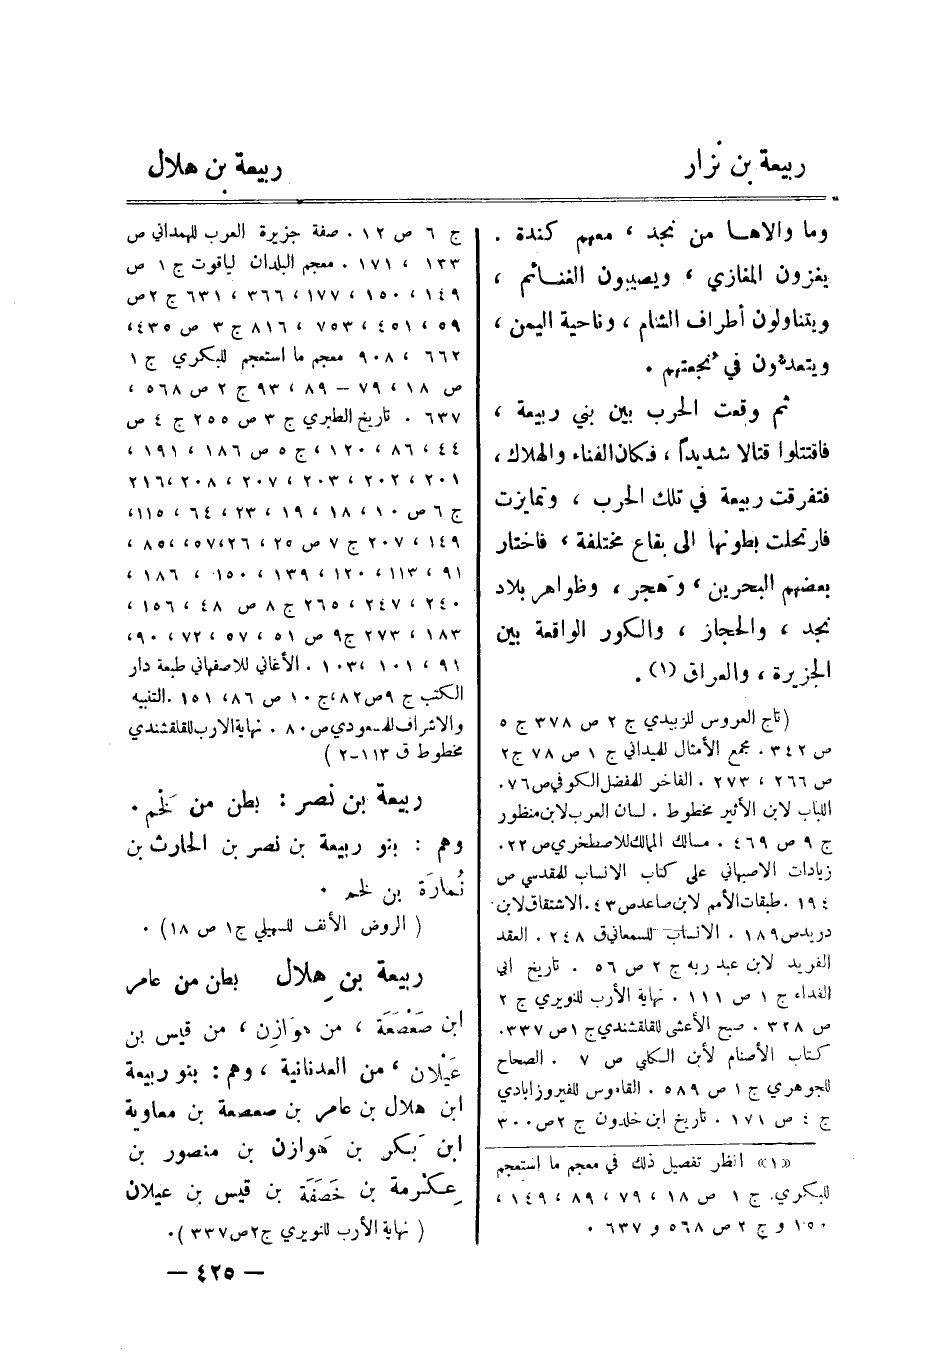 ربيعة بن نزار
ربيعة بن هلال
وما والاها من نجد ، معهم كندة .
يغزون المغازي ، ويصيبون الغنائم ،
ويتناولون أطراف الشام ، وناحية اليمن ،
ويتعدون في نجعتهم .
ثم وقعت الحرب بين بني ربيعة ،
فاقتتلوا قتالا شديداً ، فكان الفناء والهلاك ،
فتفرقت ربيعة في تلك الحرب ، وتمايزت
فارتحلت بطونها الى بقاع مختلفة ، فاختار
بعضهم البحرين ، وهَجر ، وظواهر بلاد
نجد ، والحجاز ، والكور الواقعة بين
الجزيرة ، والعراق (١) .
(تاج العروس للزبيدي ج ٢ ص ٣٧٨ ج ٥
ص ٣٤٢ . مجمع الأمثال للميداني ج ١ ص ٧٨ ج٢
ص ٢٦٦ ، ٢٧٣ . الفاخر للمفضل الكوفي ص ٧٦.
اللباب لابن الأثير مخطوط . لسان العرب لابن منظور
ج ٩ ص ٤٦٩ . مسالك الممالك للاصطخري ص ٢٢.
زيادات الاصبهاني على كتاب الانساب للمقدسي ص
١٩٤ . طبقات الأمم لابن صاعد ص ٤٣ . الاشتقاق لابن
دريد ص ١٨٩ . الانساب للسمعاني ق ٢٤٨ . العقد
الفريد لابن عبد ربه ج ٢ ص ٥٦ . تاريخ ابي
الفداء ج ١ ص ١١١ . نهاية الأرب للنويري ج ٢
ص ٣٢٨ . صبح الأعشى للقلقشندي ج ١ ص ٣٣٧.
كتاب الأصنام لأبن الكلبي ص ٧ . الصحاح
للجوهري ج ١ ص ٥٨٩ . القاموس للفيروزابادي
ج ٤ ص ١٧١ . تاريخ ابن خلدون ج ٢ ص ٣٠٠
«١» انظر تفصيل ذلك في معجم ما استعجم
للبكري. ج ١ ص ١٨ ، ٧٩ ، ٨٩ ، ١٤٩ ،
١٥٠ و ج ٢ ص ٥٦٨ و ٦٣٧ .
ج ٦ ص ١٢ . صفة جزيرة العرب للهمداني ص
١٣٣ ، ١٧١ . معجم البلدان لياقوت ج ١ ص
١٤٩ ، ١٥٠ ، ١٧٧ ، ٣٦٦ ، ٦٣١ ج ٢ ص
٥٩ ، ٤٥١ ، ٧٥٣ ، ٨١٦ ج ٣ ص ٤٣٥،
٦٦٢ ، ٩٠٨ معجم ما استعجم للبكري ج ١
ص ١٨ ، ٧٩ – ٨٩ ، ٩٣ ج ٢ ص ٥٦٨ ،
٦٣٧ . تاريخ الطبري ج ٣ ص ٢٥٥ ج ٤ ص
٤٤ ، ٨٦ ، ١٢٠ ، ج ٥ ص ١٨٦ ، ١٩١ ،
٢٠١ ، ٢٠٢ ، ٢٠٣ ، ٢٠٧ ، ٢٠٨ ، ٢١٦
ج ٦ ص ١٠ ، ١٨ ، ١٩ ، ٢٣ ، ٦٤ ، ١١٥،
١٤٩ ، ٢٠٧ ج ٧ ص ٢٥ ، ٢٦ ، ٥٧ ، ٨٥ ،
٩١ ، ١١٣ ، ١٢٠ ، ١٣٩ ، ١٥٠ ، ١٨٦ ،
٢٤٠ ، ٢٤٧ ، ٢٦٥ ج ٨ ص ٤٨ ، ١٥٦ ،
١٨٣ ، ٢٧٣ ج ٩ ص ٥١ ، ٥٧ ، ٧٢ ، ٩٠،
٩١ ، ١٠١ ، ١٠٣ . الأغاني للاصفهاني طبعة دار
الكتب ج ٩ ص ٨٢، ج ١٠ ص ٨٦، ١٥١ . التنبيه
والاشراف للمسعودي ص ٨٠ . نهاية الارب للقلقشندي
مخطوط ق ١١٣-٢ )
ربيعة بن نصر : بطن من لَخم .
وهم : بنو ربيعة بن نصر بن الحارث بن
نُمارَة بن لخم .
( الروض الأنف للسهيلي ج١ ص ١٨) .
ربيعة بن هِلال بطن من عامر
ابن صَعْصَعَة ، من هوازِن ، من قيس بن
عَيْلان ، من العدنانية ، وهم : بنو ربيعة
ابن هلال بن عامر بن صعصعة بن معاوية
ابن بَكر بن هَوازن بن منصور بن
عِكْرمة بن خَصَفَة بن قيس بن عيلان
( نهاية الأرب للنويري ج٢ ص ٣٣٧ ) .
— ٤٢٥ —